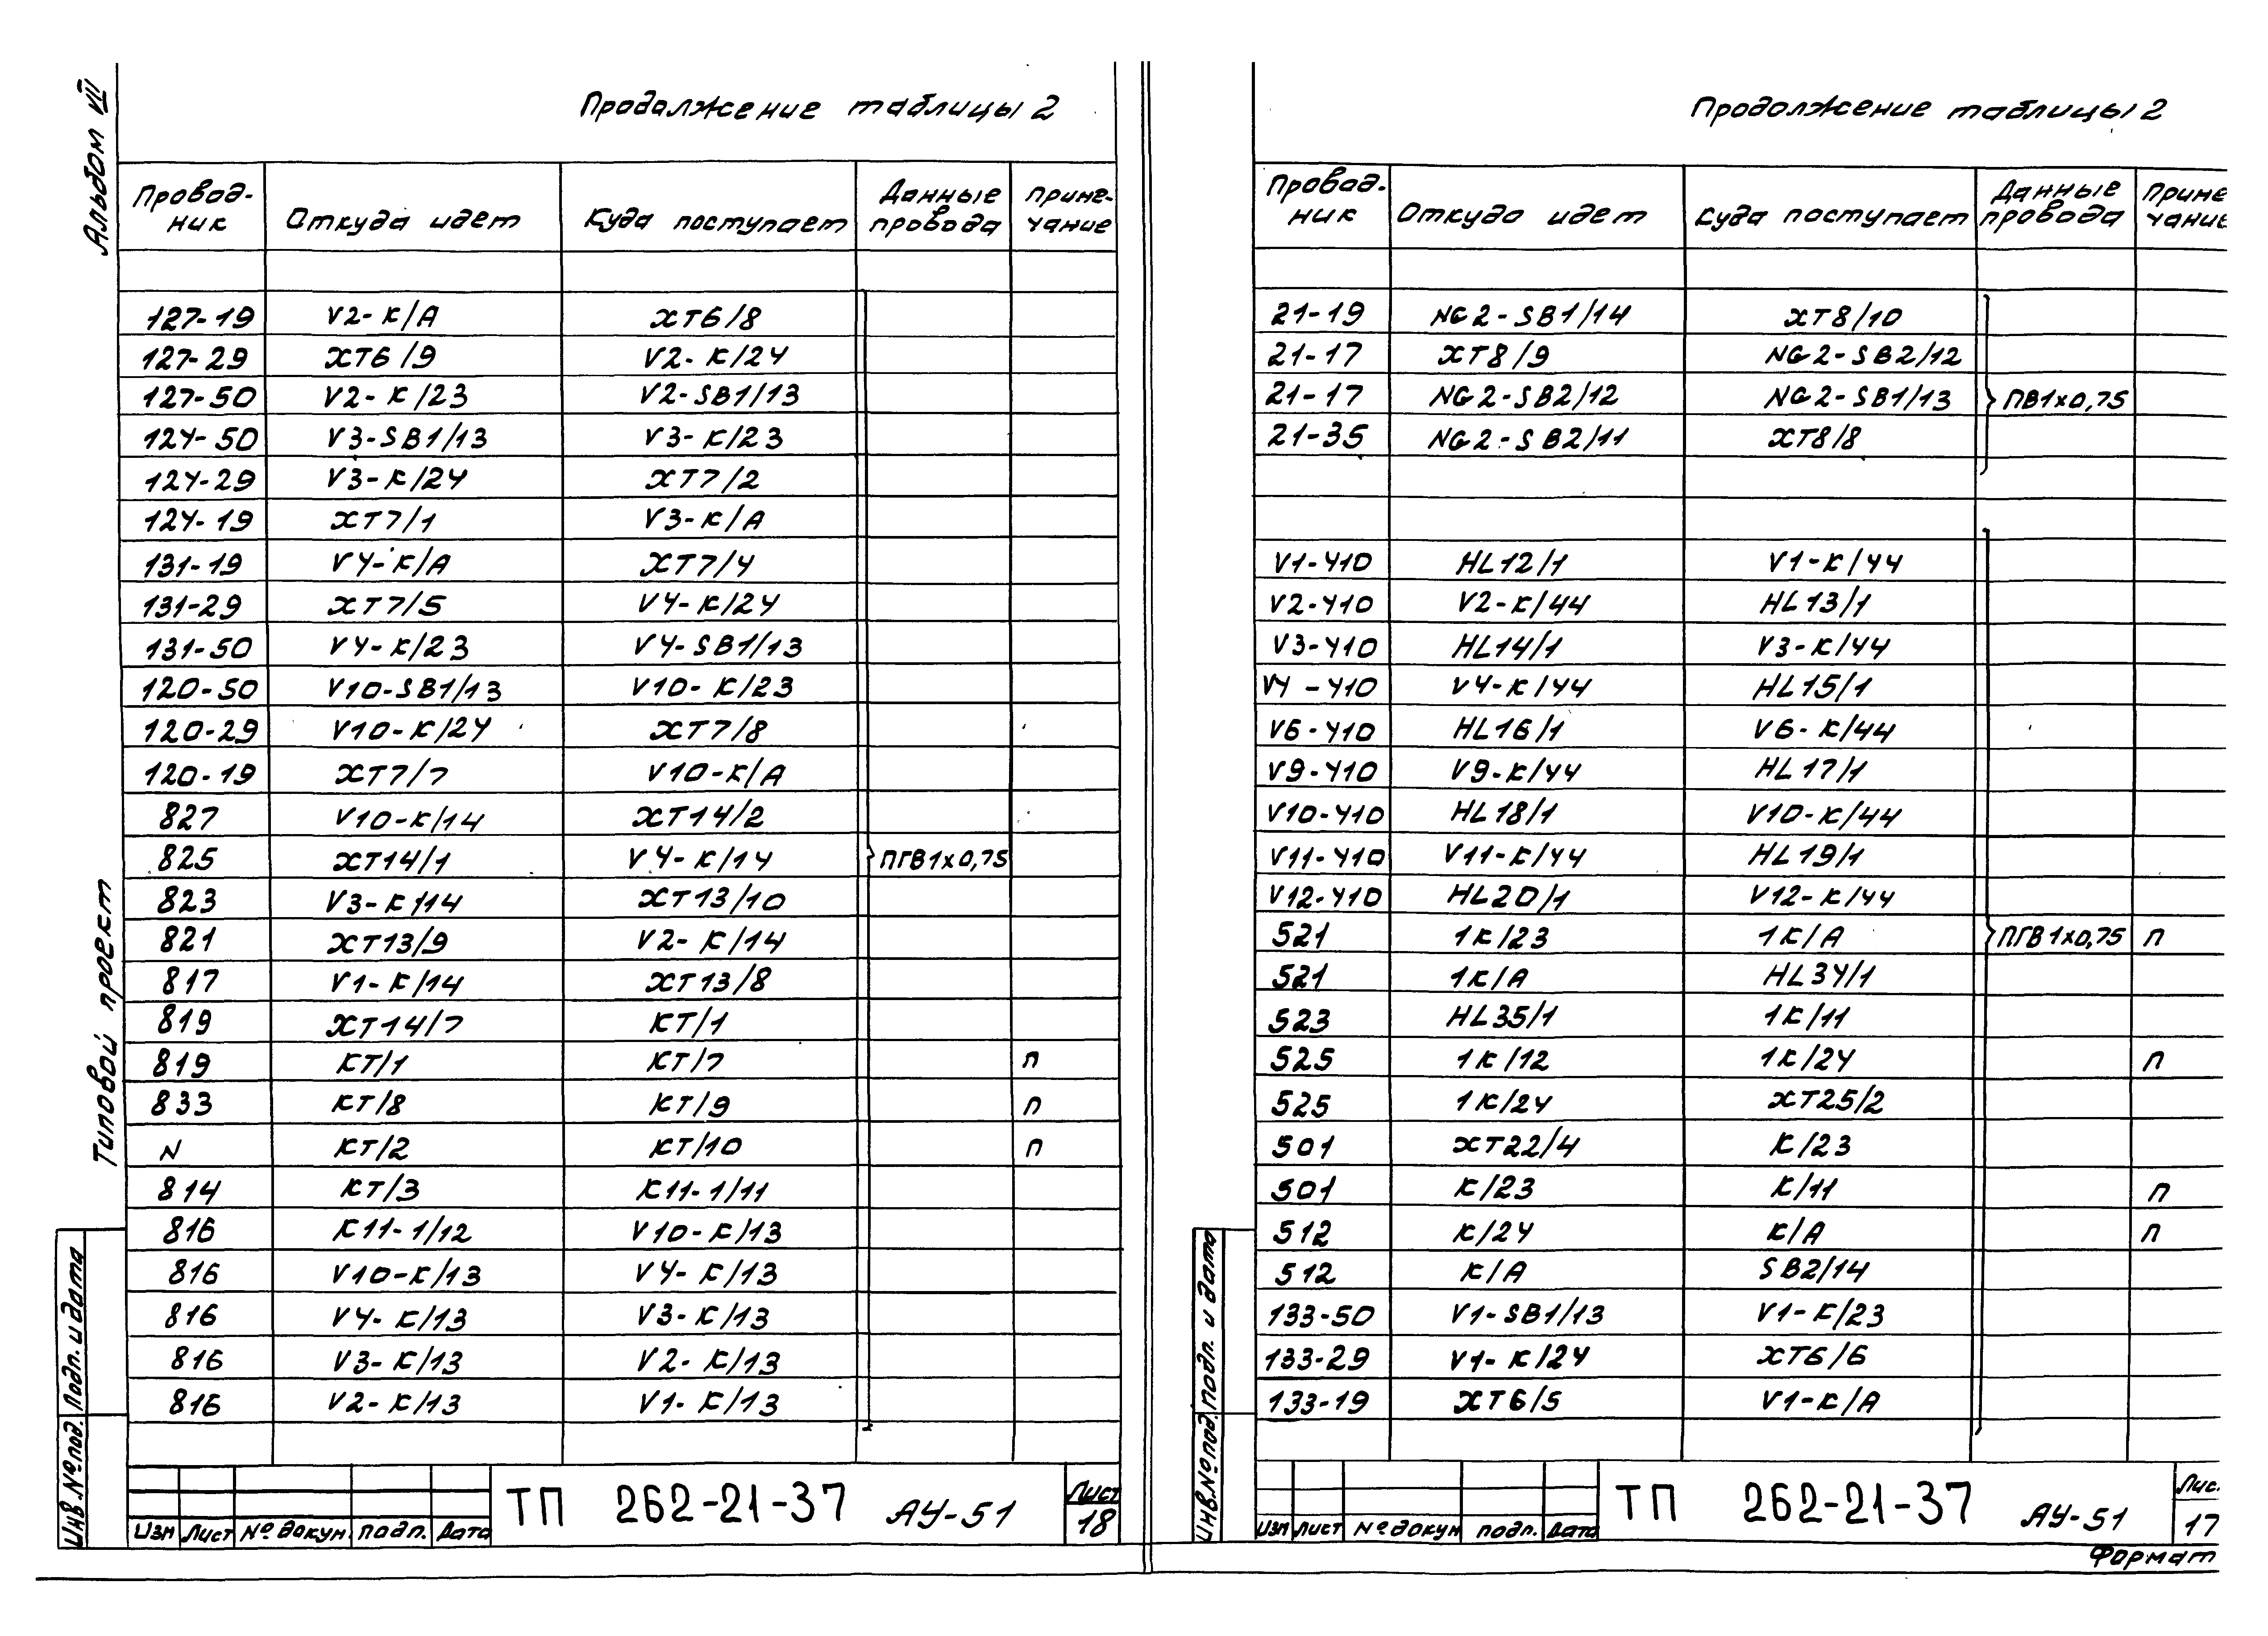 Альбом VII
Типовой проект
Продолжение таблицы 2
Провод-ник Откуда идет Куда поступает Данные провода Приме-чание
127-19 V2-К/А ХТ6/8
127-29 ХТ6/9 V2-К/24
127-50 V2-К/23 V2-SB1/13
124-50 V3-SB1/13 V3-К/23
124-29 V3-К/24 ХТ7/2
124-19 ХТ7/1 V3-К/А
131-19 V4-К/А ХТ7/4
131-29 ХТ7/5 V4-К/24
131-50 V4-К/23 V4-SB1/13
120-50 V10-SB1/13 V10-К/23
120-29 V10-К/24 ХТ7/8
120-19 ХТ7/7 V10-К/А
827 V10-К/14 ХТ14/2
825 ХТ14/1 V4-К/14 ПГВ1х0,75
823 V3-К/14 ХТ13/10
821 ХТ13/9 V2-К/14
817 V1-К/14 ХТ13/8
819 ХТ14/7 КТ/1
819 КТ/1 КТ/7 п
833 КТ/8 КТ/9 п
N КТ/2 КТ/10 п
814 КТ/3 К11-1/11
816 К11-1/12 V10-К/13
816 V10-К/13 V4-К/13
816 V4-К/13 V3-К/13
816 V3-К/13 V2-К/13
816 V2-К/13 V1-К/13
Инв.№под. Подп. и дата
Изм Лист № докум. подп. Дата
ТП 262-21-37 АУ-51
Лист
18
Продолжение таблицы 2
Провод.ник Откуда идет Куда поступает Данные провода Приме чание
21-19 NG2-SB1/14 ХТ8/10
21-17 ХТ8/9 NG2-SB2/12
21-17 NG2-SB2/12 NG2-SB1/13 ПВ1х0,75
21-35 NG2-SB2/11 ХТ8/8
V1-410 HL12/1 V1-К/44
V2-410 V2-К/44 HL13/1
V3-410 HL14/1 V3-К/44
V4-410 V4-К/44 HL15/1
V6-410 HL16/1 V6-К/44
V9-410 V9-К/44 HL17/1
V10-410 HL18/1 V10-К/44
V11-410 V11-К/44 HL19/1
V12-410 HL20/1 V12-К/44
521 1К/23 1К/А ПГВ1х0,75 п
521 1К/А HL34/1
523 HL35/1 1К/11
525 1К/12 1К/24 п
525 1К/24 ХТ25/2
501 ХТ22/4 К/23
501 К/23 К/11 п
512 К/24 К/А п
512 К/А SB2/14
133-50 V1-SB1/13 V1-К/23
133-29 V1-К/24 ХТ6/6
133-19 ХТ6/5 V1-К/А
Инв.№под. подп. и дата
Изм Лист № докум подп. Дата
ТП 262-21-37 АУ-51
Лис.
17
Формат